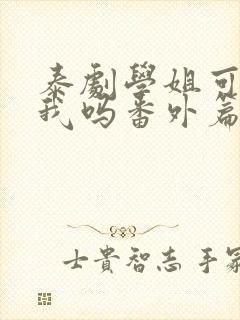 泰劇學姐可
我吗番外篇
士貴智志 手冢